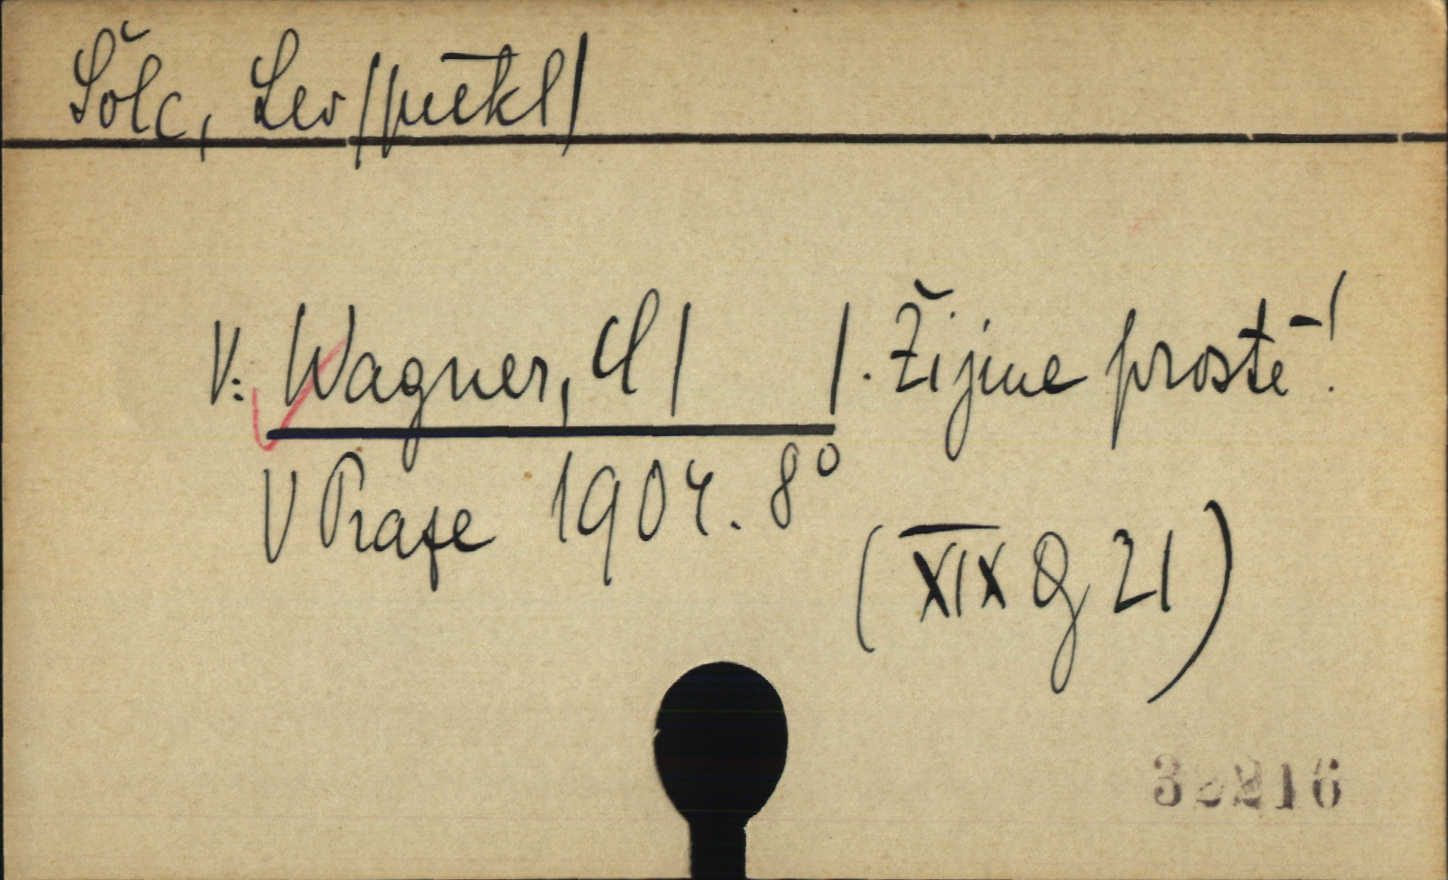 Šolc, Lev /překl/
V: Wagner, Ch / /. Žijme prostě!
V Praze 1904. 8°
(XIX G 21)
32216